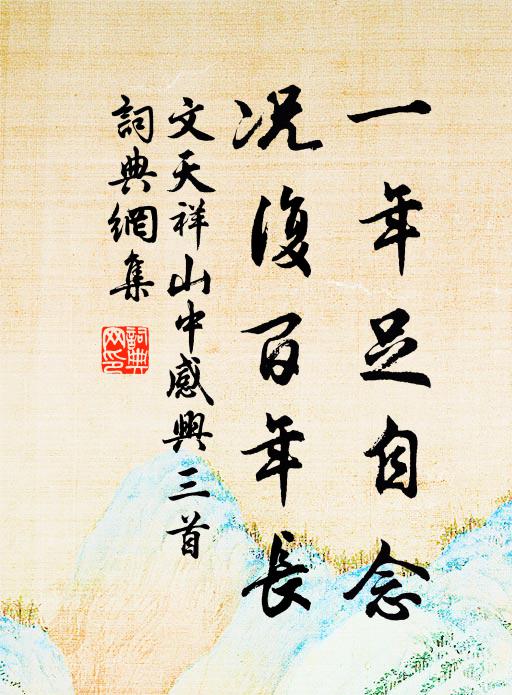 一年足自念
况復百年長
文天祥山中感興三首
詞典網集
詞典網印